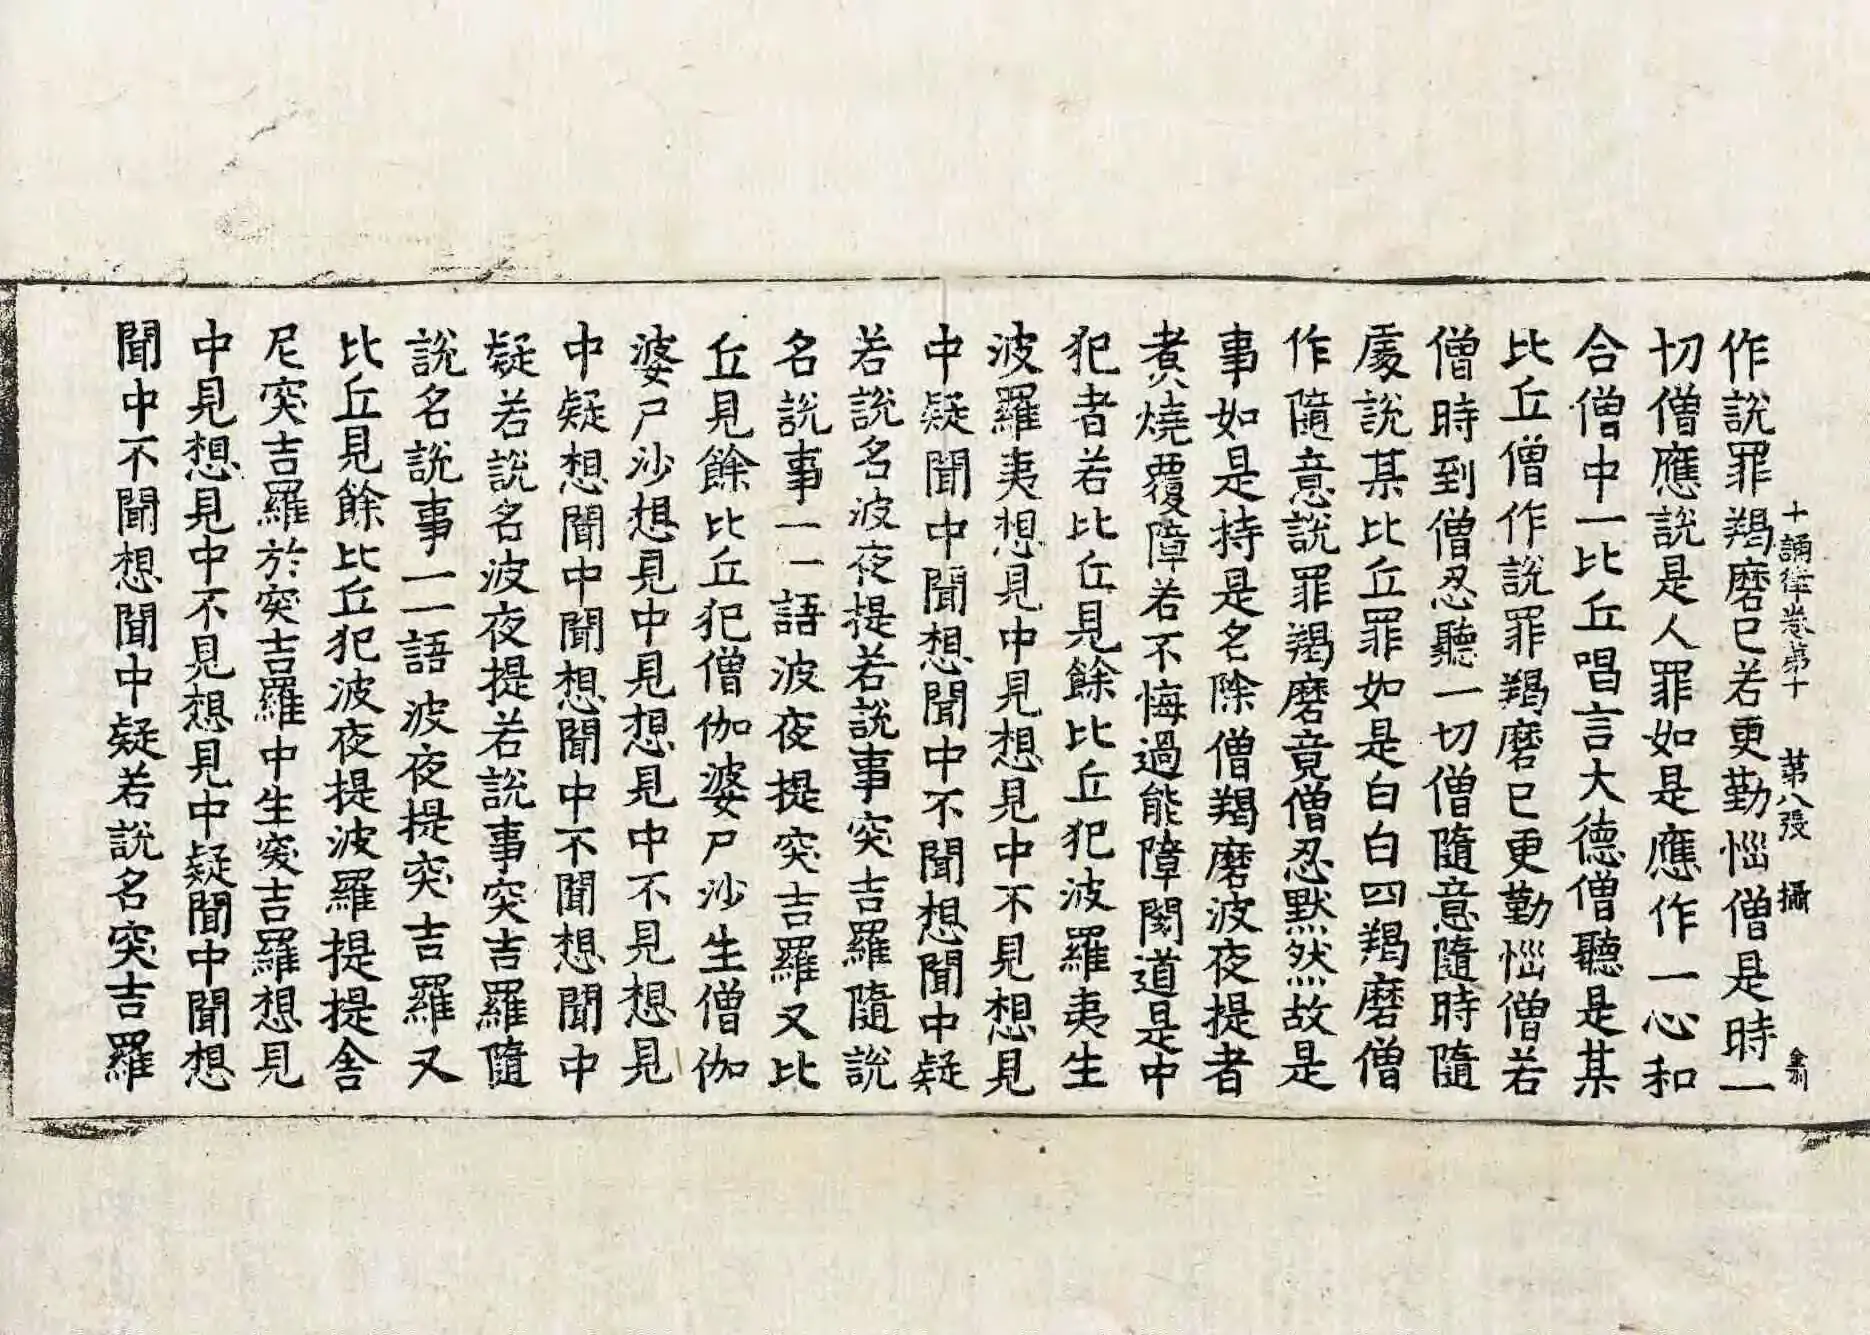 十誦律卷第十 第八張 攝
作說罪羯磨已若更勤惱僧是時一
切僧應說是人罪如是應作一心和
合僧中一比丘唱言大德僧聽是某
比丘僧作說罪羯磨已更勤惱僧若
僧時到僧忍聽一切僧隨意隨時隨
處說某比丘罪如是白白四羯磨僧
作隨意說罪羯磨竟僧忍默然故是
事如是持是名除僧羯磨波夜提者
煑燒覆障若不悔過能障閡道是中
犯者若比丘見餘比丘犯波羅夷生
波羅夷想見中見想見中不見想見
中疑聞中聞想聞中不聞想聞中疑
若說名波夜提若說事突吉羅隨說
名說事一一語波夜提突吉羅又比
丘見餘比丘犯僧伽婆尸沙生僧伽
婆尸沙想見中見想見中不見想見
中疑想聞中聞想聞中不聞想聞中
疑若說名波夜提若說事突吉羅隨
說名說事一一語波夜提突吉羅又
比丘見餘比丘犯波夜提波羅提提舍
尼突吉羅於突吉羅中生突吉羅想見
中見想見中不見想見中疑聞中聞想
聞中不聞想聞中疑若說名突吉羅